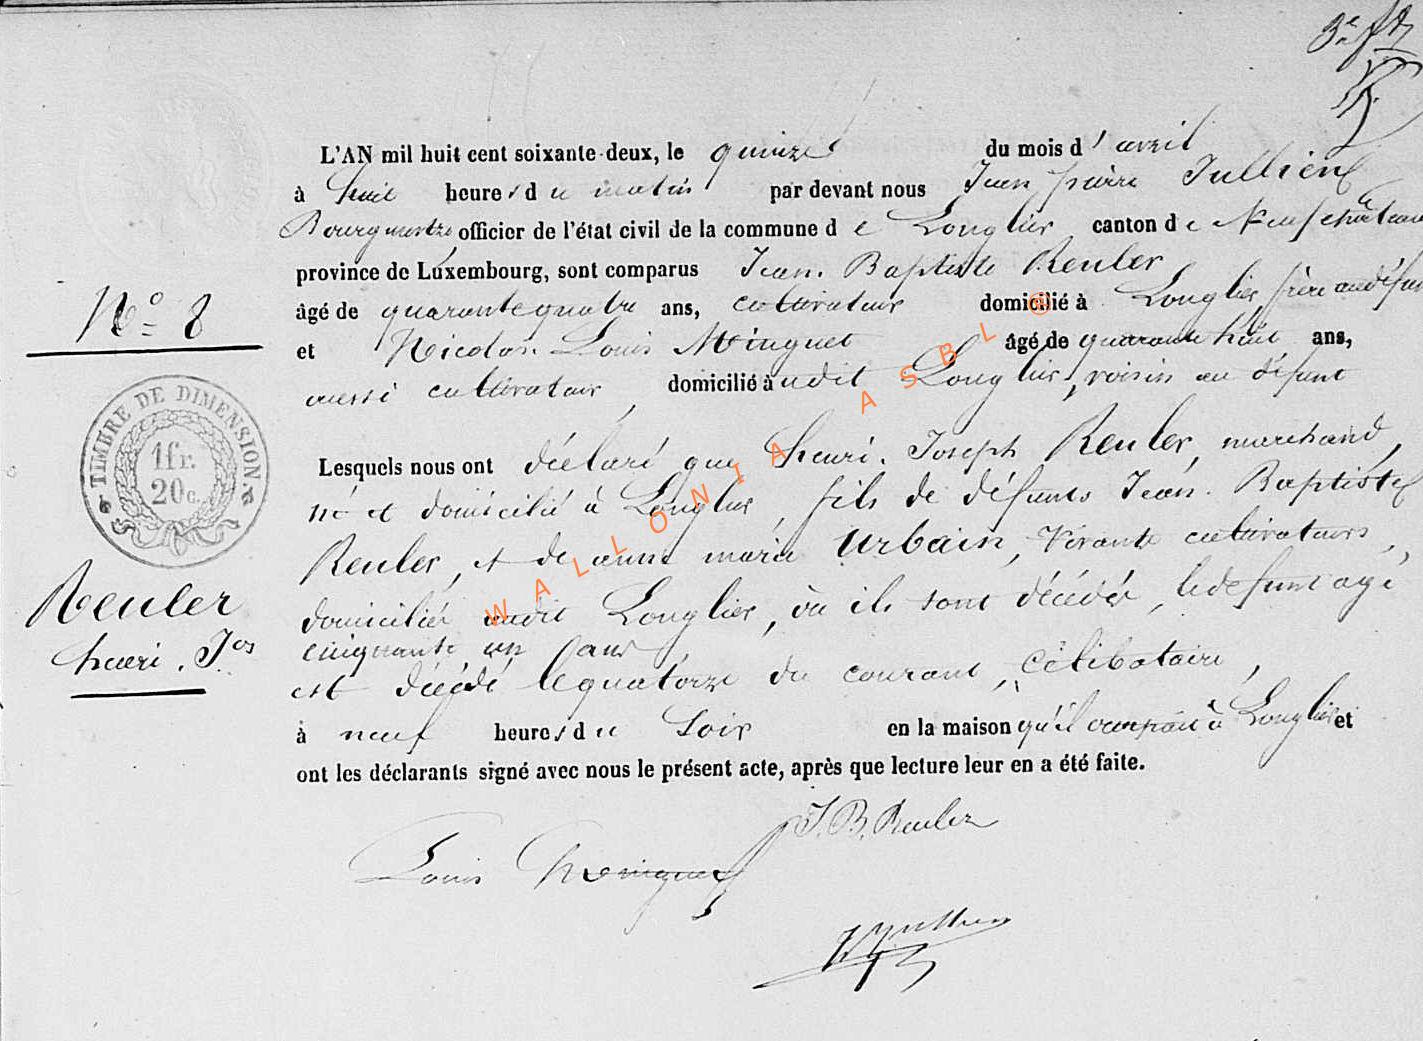 3e
L'AN mil huit cent soixante-deux, le quinze du mois d'avril
à huit heures du matin par devant nous Jean pierre Jullien
Bourgmestre officier de l'état civil de la commune de Longlier canton de Neufchateau
province de Luxembourg, sont comparus Jean Baptiste Reuler
âgé de quarante quatre ans, cultivateur domicilié à Longlier, frère au défunt
et Nicolas Louis Minguet âgé de quarante huit ans,
aussi cultivateur, domicilié audit Longlier, voisin au défunt
Lesquels nous ont déclaré que henri Joseph Reuler, marchand,
né et domicilié à Longlier, fils de défunts Jean Baptiste
Reuler, et de anne marie Urbain, Vivante cultivateurs,
domiciliés audit Longlier, où ils sont décédés, le defunt agé
cinquante un ans,
est décédé le quatorze du courant, Célibataire,
à neuf heures du Soir en la maison qu'il occupait à Longlier et
ont les déclarants signé avec nous le présent acte, après que lecture leur en a été faite.
J. B. Reuler
Louis Minguet
No 8
TIMBRE DE DIMENSION.
1fr.
20c.
Reuler
henri Jos
WALLONIA ASBL ®